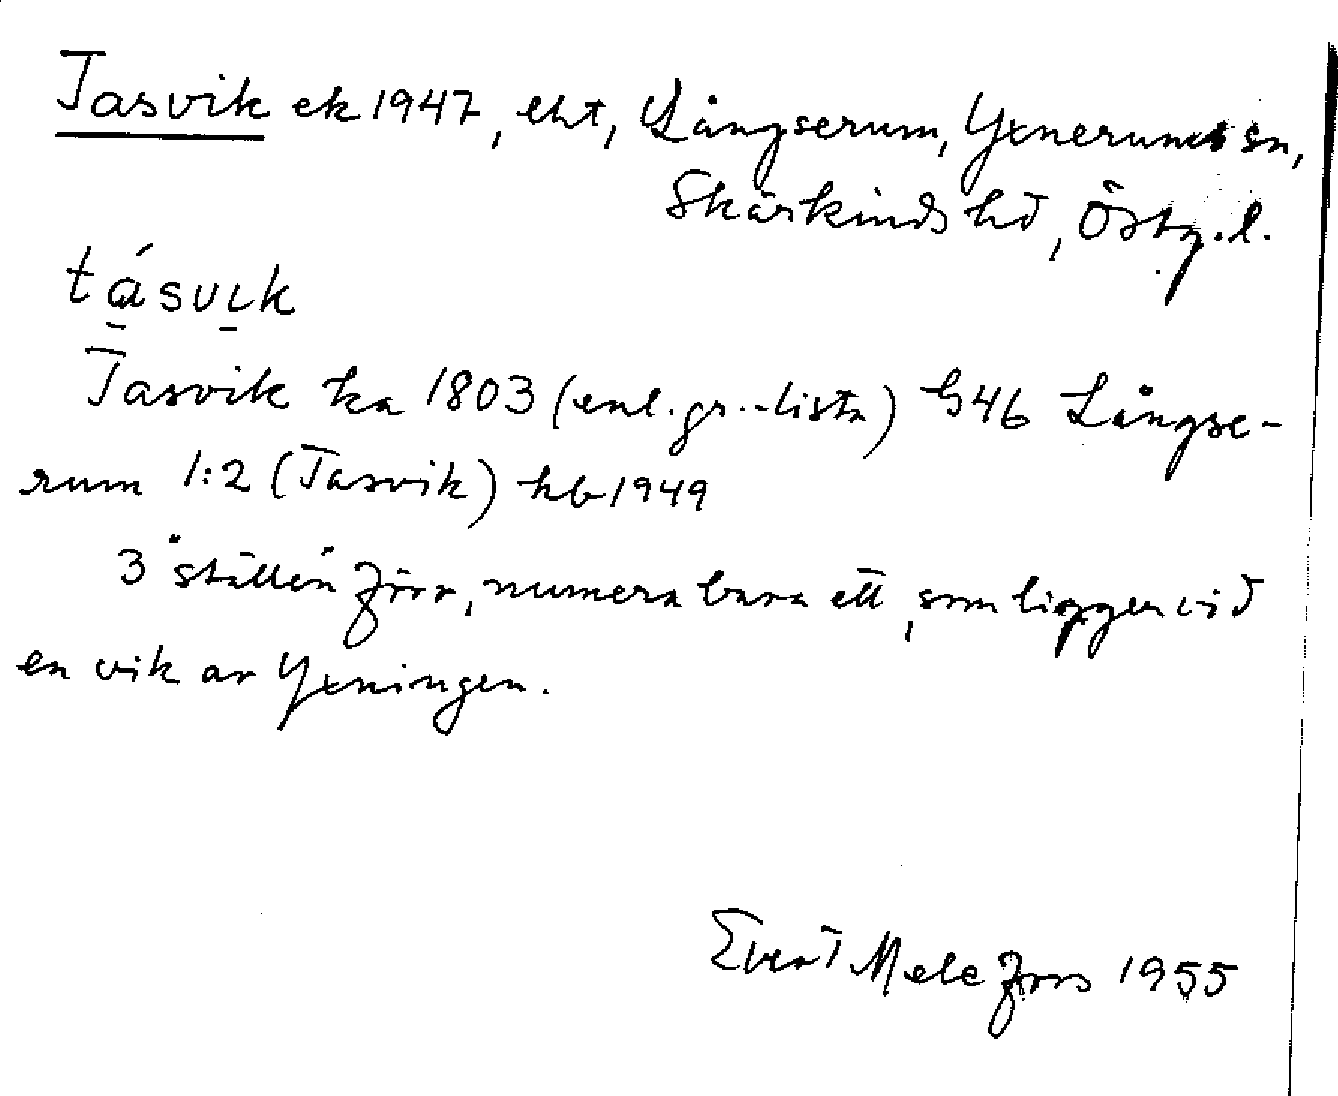 Tasvik ek 1947, lht, Långserum, Yxnerums sn,
Skärkinds hd, Östg. l.
tásvik
Tasvik ka 1803 (enl. gr.-lista) G46 Långse-
rum 1:2 (Tasvik) hb 1949
3 "ställen" förr, numera bara ett, som ligger vid
en vik av Yxningen.
Evert Melefors 1955